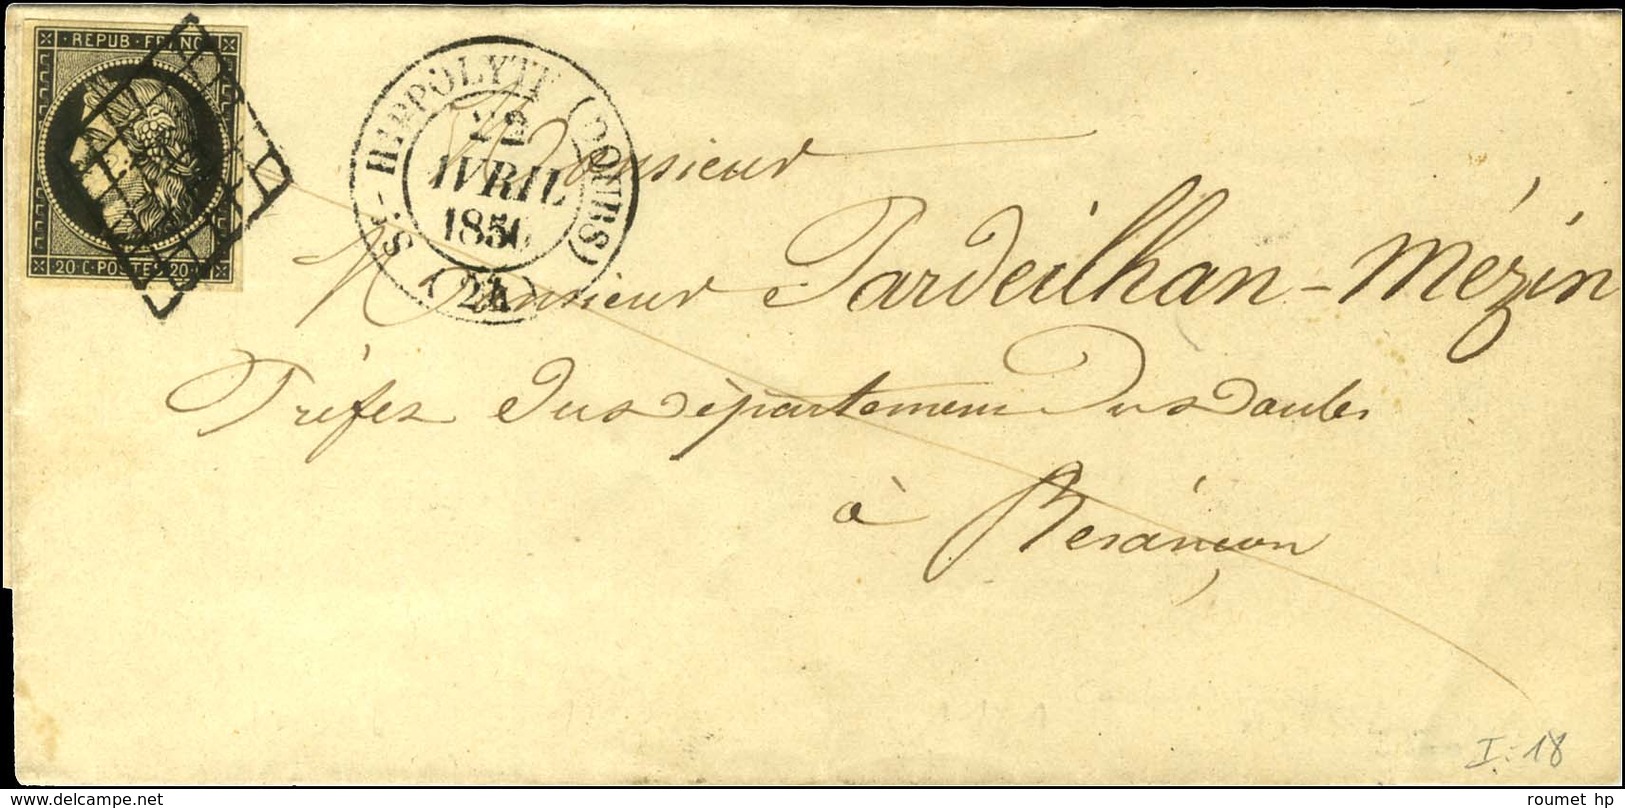 REPUB·FRANC
20·C·POSTES·20·C
ST.-HIPPOLYTE (DOUBS)
22
AVRIL
1850
(24)
Monsieur
Monsieur Pardeilhan-Mézin
Préfet du département du doubs
à Besançon
I. 18
roumet hp